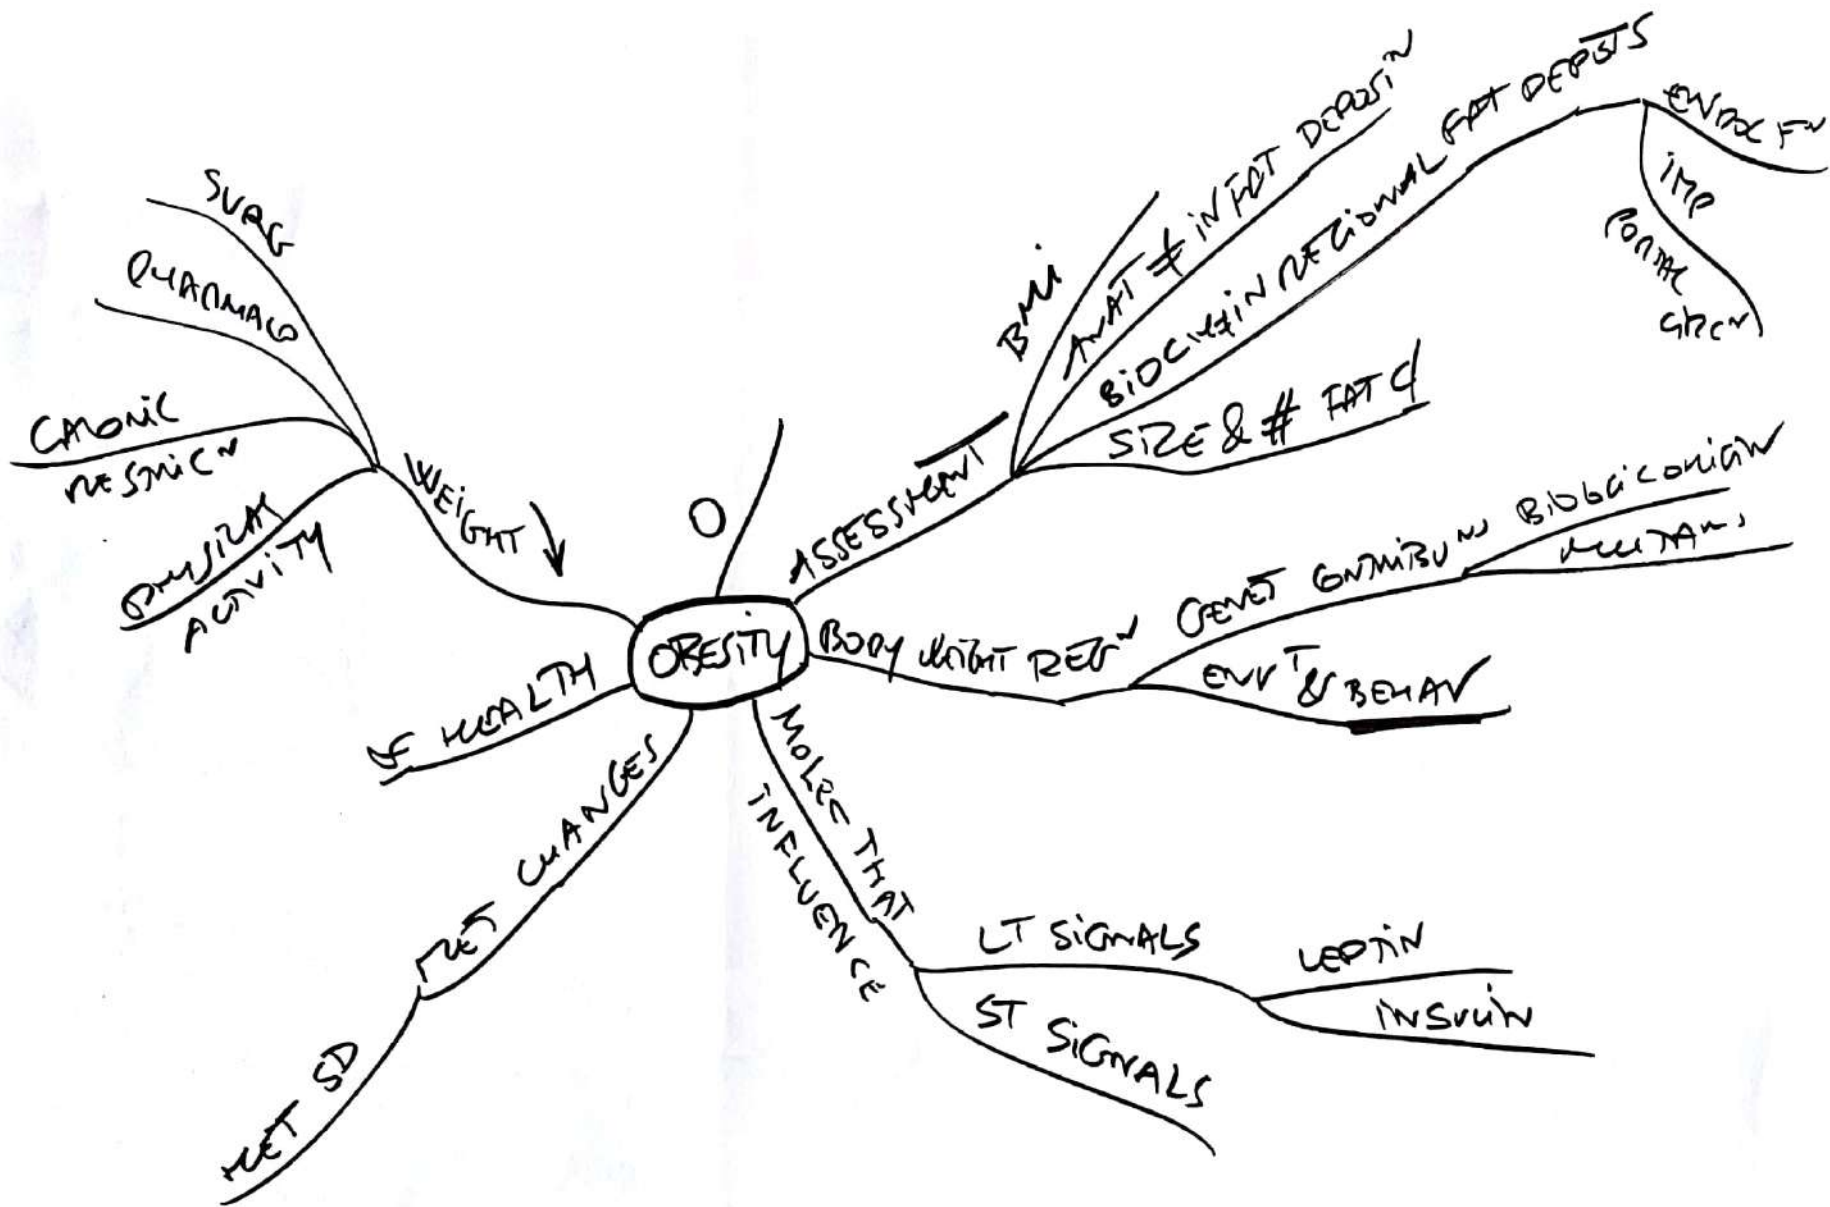 OBESITY
O
ASSESSMENT
BMI
ANAT ≠ IN FAT DEPOSIT^N
BIOCH ≠ IN REGIONAL FAT DEPOTS
ENDOC F^N
IMP
PORTAL
CIRC^N
SIZE & # FAT C
BODY WEIGHT REG^N
GENET CONTRIBU^N
BIOLGIC ORIGIN
MUTA^NS
ENV^T & BEHAV
MOLEC THAT
INFLUENCE
LT SIGNALS
LEPTIN
INSULIN
ST SIGNALS
MET CHANGES
MET SD
HEALTH
WEIGHT ↓
SURG
PHARMACO
CALORIC
RESTRIC^N
PHYSICAL
ACTIVITY